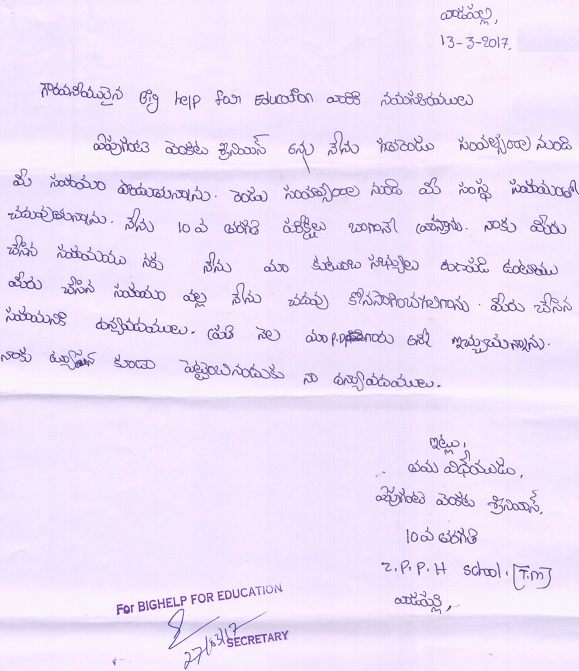 వాడపల్లి,
13-3-2017.
గౌరవనీయులైన Big help for Education వారికి నమస్కారములు
వెంకట శ్రీనివాస్ అను నేను గత రెండు సంవత్సరాల నుండి
మీ సహాయం పొందుతున్నాను. రెండు సంవత్సరాల నుండి మీ సంస్థ సహాయంతో
చదువుతున్నాను. నేను 10వ తరగతి పరీక్షలు బాగానే వ్రాస్తాను. నాకు మీరు
చేసిన సహాయము నకు నేను మా కుటుంబ సభ్యులు రుణపడి ఉంటాము
మీరు చేసిన సహాయం వల్ల నేను చదువు కొనసాగించగలిగాను. మీరు చేసిన
సహాయానికి ధన్యవాదములు. ప్రతి నెల మా గారు ఇచ్చుచున్నారు.
నాకు ట్యూషన్ కూడా పెట్టించినందుకు నా ధన్యవాదములు.
ఇట్లు,
తమ విధేయుడు,
వెంకట శ్రీనివాస్.
10వ తరగతి
Z.P.P.H School. [T.M]
వాడపల్లి,
For BIGHELP FOR EDUCATION
27/03/17
SECRETARY